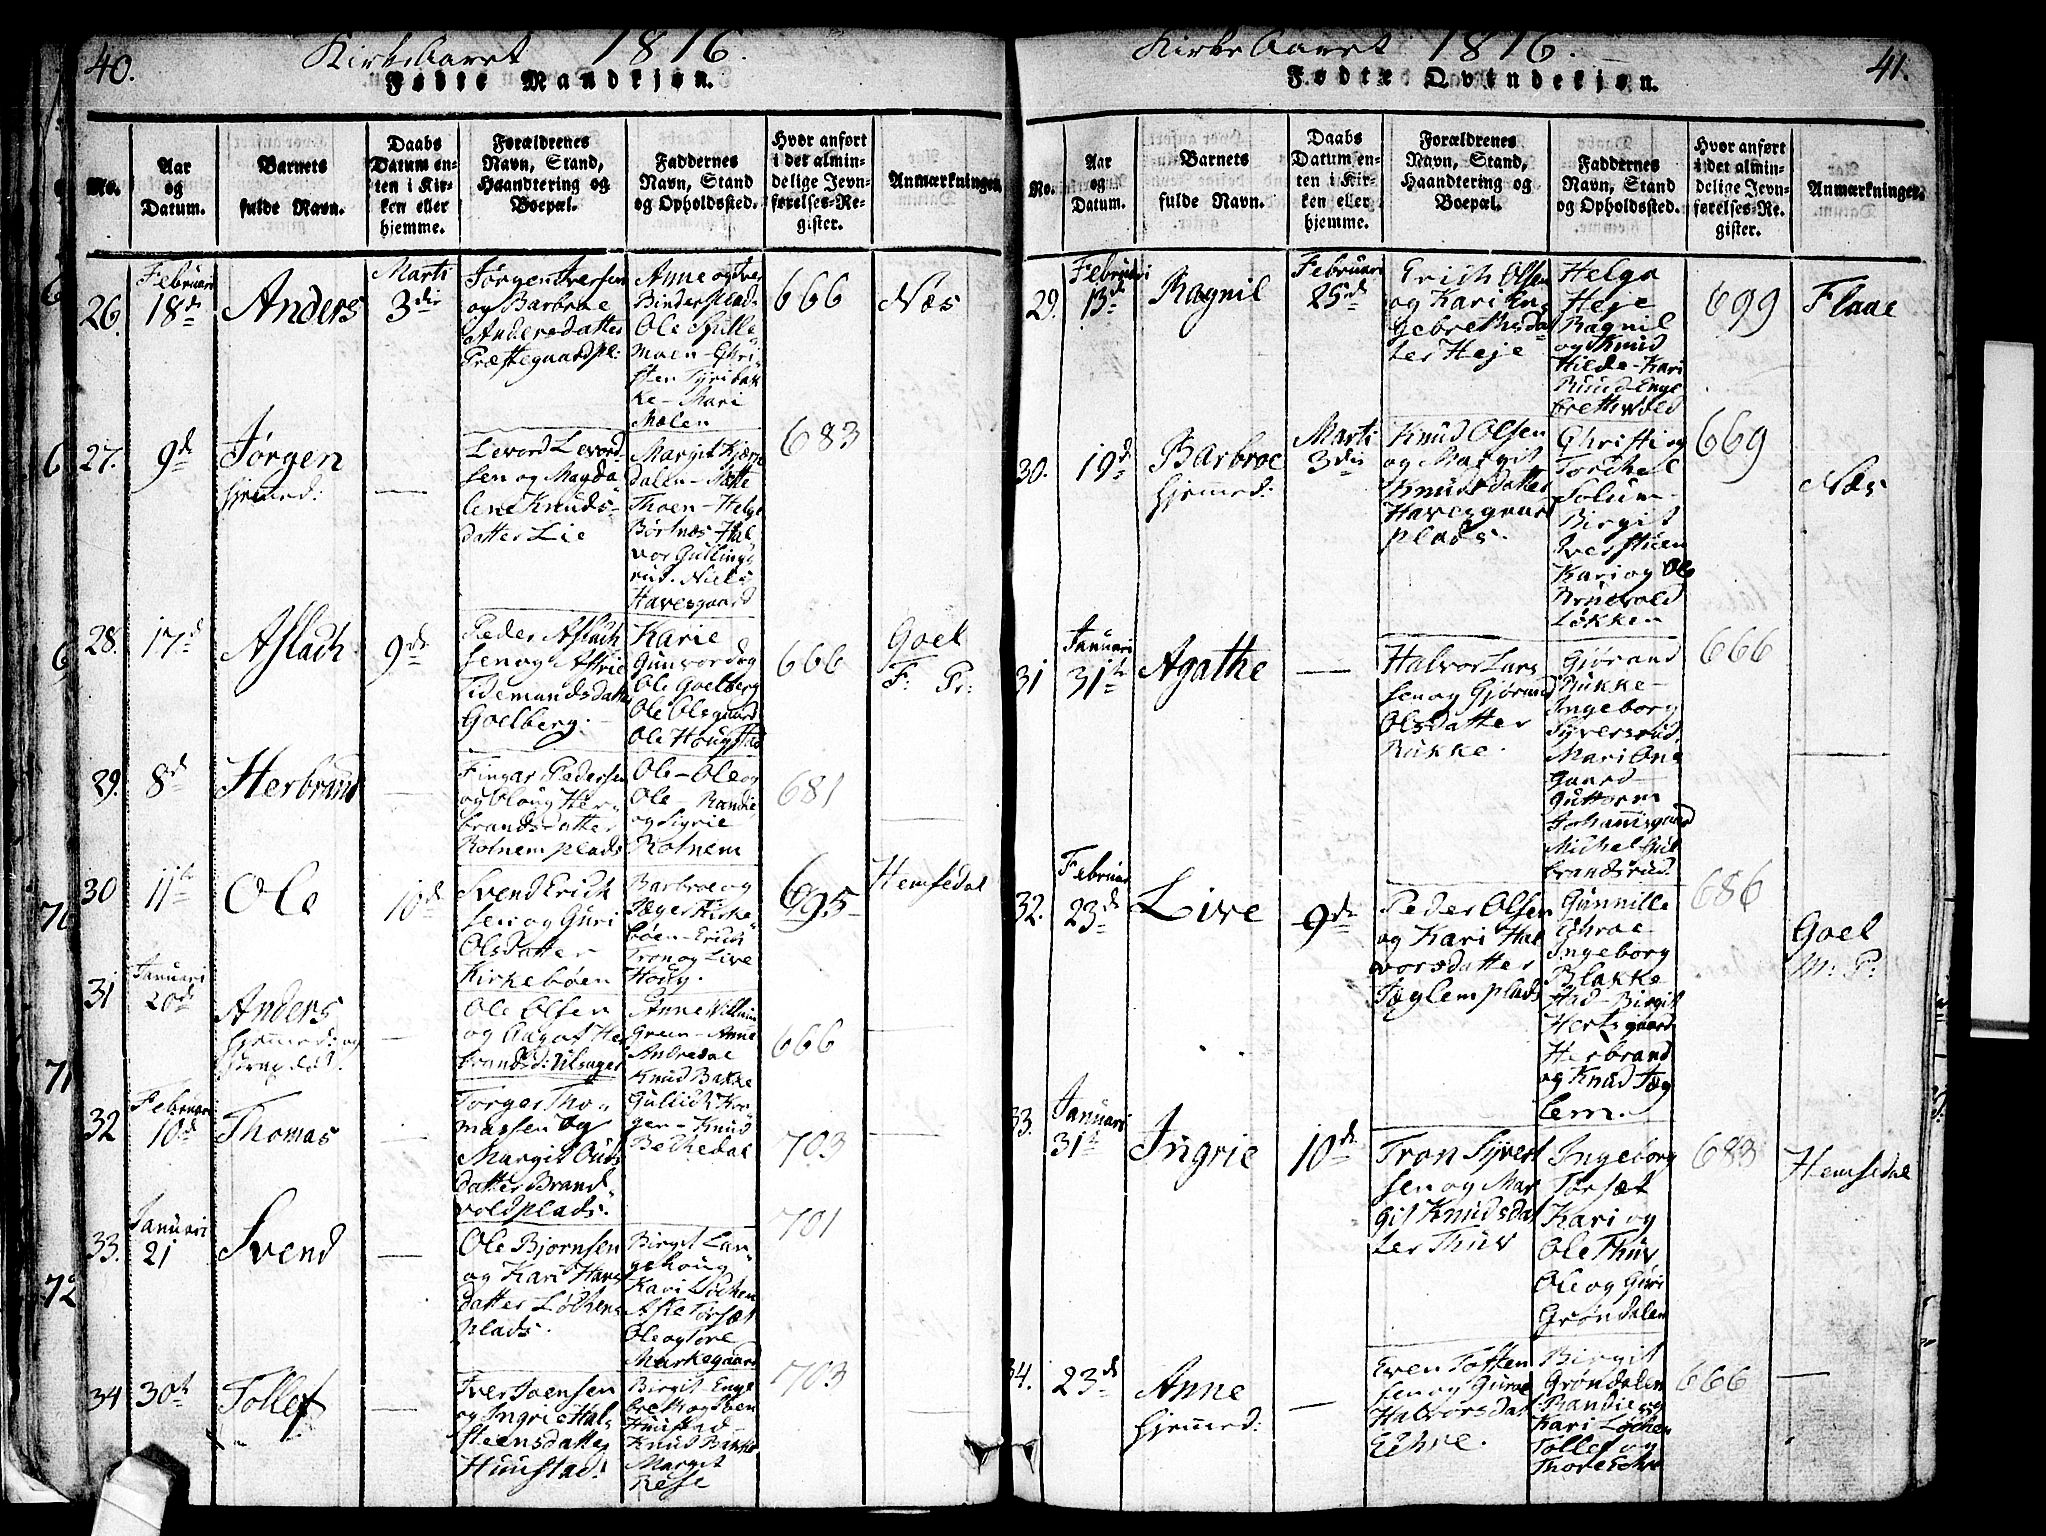 40.
Kirke Aaret 1816.
Fødte Mandkjøn.
No.
Aar
og
Datum.
Barnets
fulde Navn.
Daabs
Datum en-
ten i Kir-
ken eller
hjemme.
Forældrenes
Navn, Stand,
Haandtering og
Boepæl.
Faddernes
Navn, Stand
og Opholdssted.
Hvor anført
i det almin-
delige Jevn-
førelses-Re-
gister.
Anmærkninger.
26.
Februari
18de
Anders
Marti
3die
Jørgen Iversen
og Barbroe
Andersdatter
Præstegaardspl:
Anne og Iver
Binders plads
Ole Spille
moen - Chri
sten Tyribak
ke - Mari
Mælen
666
Næs
27.
9de
Jørgen
hjemmed:
—
Levord Levord
sen og Magda
lene Knuds-
datter Lie
Margit Kjærn
dalen - Aatte
Thoen - Helge
Børtnæs - Hal
vor Gullings
rud. Niels
Havesgaard
683
28.
17de
Aslach
9de
Peder Aslach
sen og Astrie
Tidemandsdatter
Goelberg.
Karie
Gunvord og
Ole Goelberg
Ole Olsgaard
Ole Houg
666
Goel
F: Pr:
29.
8de
Herbrand
—
Fingar Pedersen
og Oloug Her-
brandsdatter
Rotnem plads
Ole - Ole og
Ole Randie
og Sigrie
Rotnem
681
—
30
11te
Ole
10de
Svend Erich
sen og Guri
Olsdatter
Kirkebøen
Barbroe og
Jæger Kirke
bøen - Erich
Tron og Live
Houg.
695
Hemsedal
31
Januari
20de
Anders
hjemmed: og
—
Ole Olsen
og Aagot Her
brandsd: Ulsager
Anne Villum
Green - Anne
Andredal
Knud Bakke
666
—
32
Februari
10de
Thomas
—
Torger Tho-
massen og
Margit Guds
datter Brand
voldplads.
Gullich Kor
gen - Knud
Bekkedal
703
—
33.
Januari
21
Svend
—
Ole Bjørnsen
og Kari Hans
datter Løkkens
plads.
Birgit Lan
gehoug
Kari Løchen
Aske Torsæt
Ole og Tore
Markegaard
701
34
30te
Tollef
—
Iver Joensen
og Ingrie Hal
steensdatter
Huustad.
Birgit Enge
breth og Iben
Huustad
Knud Bakke
Margit
Rese
703
—
41.
Kirke Aaret 1816.
Fødte Qvindekjøn.
No.
Aar
og
Datum.
Barnets
fulde Navn.
Daabs
Datum en-
ten i Kir-
ken eller
hjemme.
Forældrenes
Navn, Stand,
Haandtering og
Boepæl.
Faddernes
Navn, Stand
og Opholdssted.
Hvor anført
i det almin-
delige Jevn-
førelses-Re-
gister.
Anmærkninger.
29.
Februari
13de
Ragnil
Februari
25de
Erich Olsen
og Kari En
gebrethsdat
ter Heje
Helga
Heje
Ragnil
og Knud
Hilde - Kari
Ruud - Enge
breth Wold
699
Flaae
30.
19de
Barbroe
hjemmed:
Marti
3die
Knud Olsen
og Margit
Knudsdatter
Havesgaard
plads.
Christi og
Torchel
Solum -
Birgit
Iverstuen
Kari og Ole
Bruevold
Løkken
669
Næs
31
Januari
31te
Agathe
—
Halvor Lars
sen og Gjørand
Olsdatter
Rukke.
Gjørand
Rukke -
Ingeborg
Syversrud
Mari One
gaard -
Guttorm
Johannisgaard
Michel Gul
brandsrud.
666
—
32.
Februari
23de
Live
9de
Peder Olsen
og Kari Hal
vorsdatter
Jæglem plads
Gunnille
Ehroe
Ingeborg
Blakke
stad - Birgit
Hertsgaard
Herbrand
og Knud Jæg
lem.
686
Goel
M: P:
33.
Januari
31te
Ingrie
10de
Tron Syvert
sen og Mar
git Knudsdat
ter Thuv
Ingeborg
Torsæt
Kari og
Ole Thuv
Ole og Guri
Grøndalen
683
Hemsedal
34.
23de
Anne
hjemmed:
—
Even Tosten
sen og Guroe
Halvorsdat
Eihre.
Birgit
Grøndalen
Randie og
Kari Løchen
Tollef og
Thore Eihre
666
—